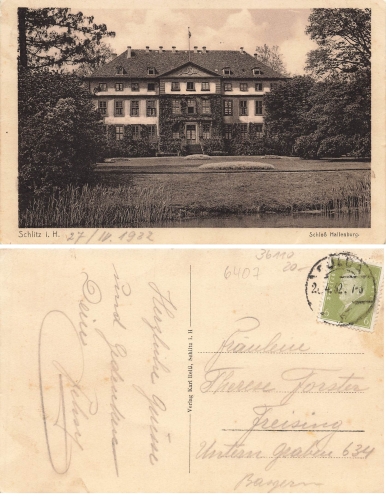 Schlitz i. H.
Schloß Hallenburg.
27/IV. 1932
36110
6407
Herzliche Grüsse
und Gedenken
Deine
Verlag Karl Dellü, Schlitz i. H
Fräulein
Therese Forster
Freising
Unterm Graben 634
Bayern